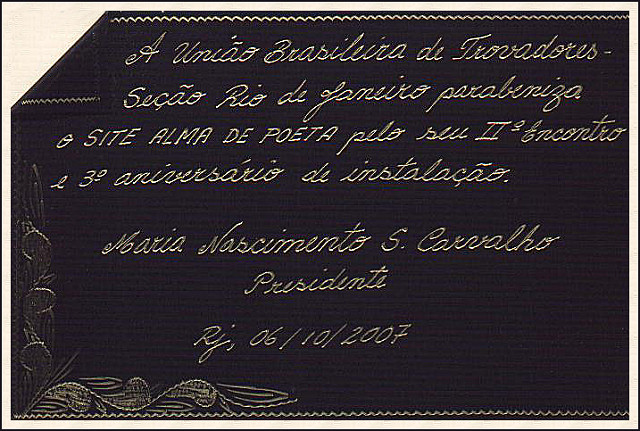 A União Brasileira de Trovadores-
Seção Rio de Janeiro parabeniza
o SITE ALMA DE POETA pelo seu IIº Encontro
e 3º aniversário de instalação.
Maria Nascimento S. Carvalho
Presidente
Rj, 06/10/2007